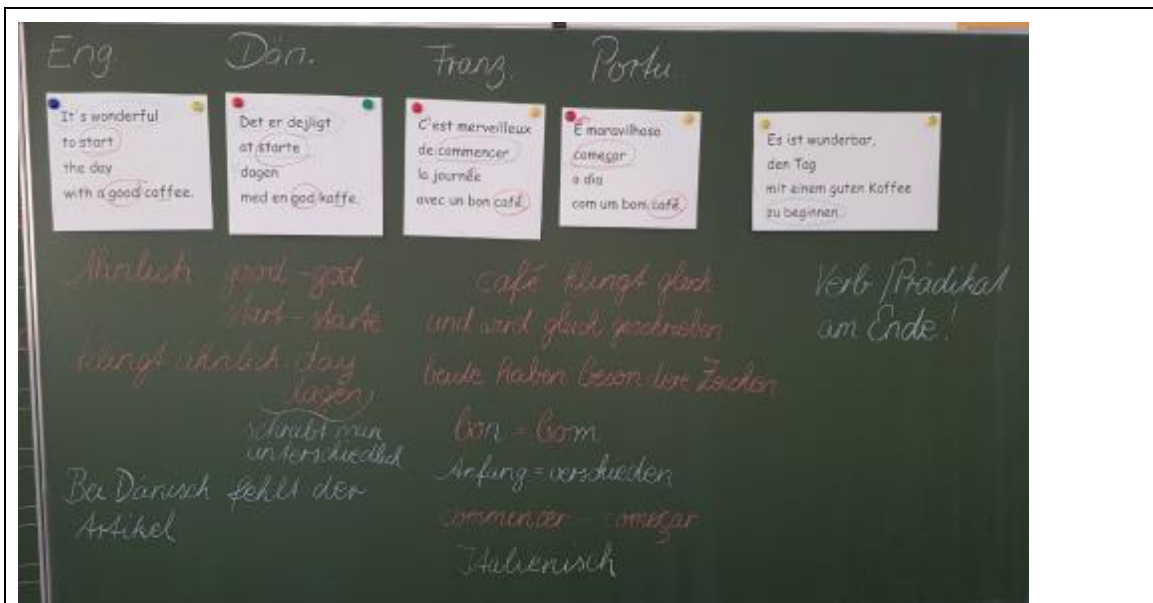 Eng.
Dän.
Franz.
Portu.
It's wonderful
to start
the day
with a good coffee.
Det er dejligt
at starte
dagen
med en god kaffe.
C'est merveilleux
de commencer
la journée
avec un bon café.
É maravilhoso
começar
o dia
com um bom café.
Es ist wunderbar,
den Tag
mit einem guten Kaffee
zu beginnen.
Ähnlich good - god
start - starte
klingt ähnlich day
dagen
schreibt man
unterschiedlich
Bei Dänisch fehlt der
Artikel
café klingt gleich
und wird gleich geschrieben
beide haben besondere Zeichen
bon = bom
Anfang = verschieden
commencer - começar
Italienisch
Verb / Prädikat
am Ende!